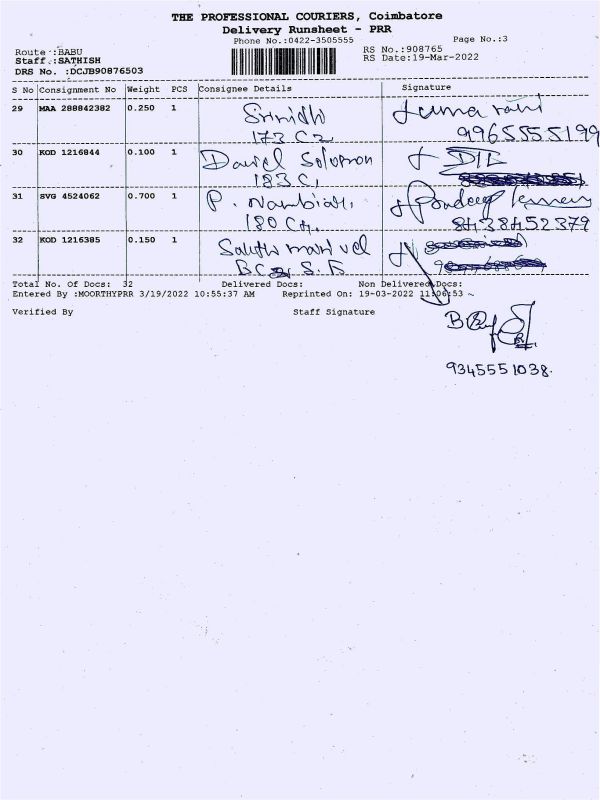 THE PROFESSIONAL COURIERS, Coimbatore
Delivery Runsheet - PRR
Phone No.:0422-3505555
Page No.:3
Route :BABU
RS No.:908765
Staff :SATHISH
RS Date:19-Mar-2022
DRS No. :DCJB90876503
S No Consignment No Weight PCS Consignee Details Signature
29 MAA 288842382 0.250 1 Srinidhi uma rani
173 C2 9965555199
30 KOD 1216844 0.100 1 David Solomon
183 C1
31 SVG 4524062 0.700 1 P. Nambiar
180 C4 8438452379
32 KOD 1216385 0.150 1
Total No. Of Docs: 32 Delivered Docs: Non Delivered Docs:
Entered By :MOORTHYPRR 3/19/2022 10:55:37 AM Reprinted On: 19-03-2022 11:06:53
Verified By Staff Signature
9345551038.